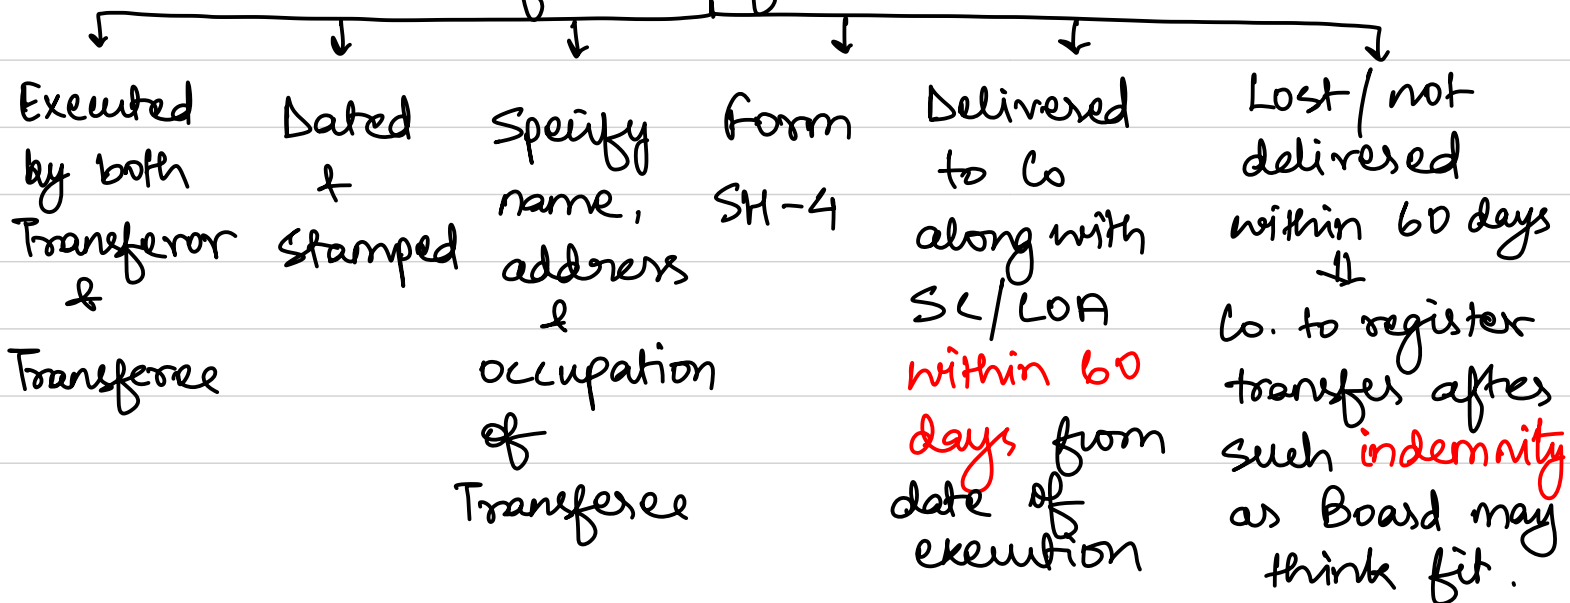 Executed
by both
Transferor
&
Transferee
Dated
+
Stamped
Specify
name,
address
&
occupation
of
Transferee
Form
SH-4
Delivered
to Co
along with
SC/LOA
within 60
days from
date of
execution
Lost/not
delivered
within 60 days
⇓
Co. to register
transfer after
such indemnity
as Board may
think fit.